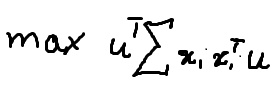 max uᵀ∑xᵢxᵢᵀu